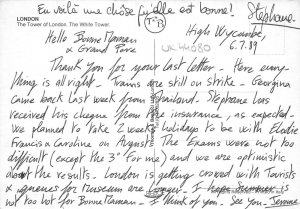 En voilà une chose qu'elle est bonne!
Stéphane
LONDON
The Tower of London. The White Tower.
T R
High Wycombe,
6.7.89
UK 44080
Hello Bonne Maman
& Grand Père
Thank you for your last letter - Here every-
thing is all right - Trains are still on strike - Georgina
came back last week from Thailand. Stéphane has
received his cheque from the insurance, as expected.
We planned to take 2 weeks holidays to be with Elodie
Francis & Caroline on August. The Exams were not too
difficult (except the 3° for me) and we are optimistic
about the results. London is getting crowd with Tourists
& queues for museum are longer - I hope summer is
not too hot for Bonne Maman - I think of you. See You -